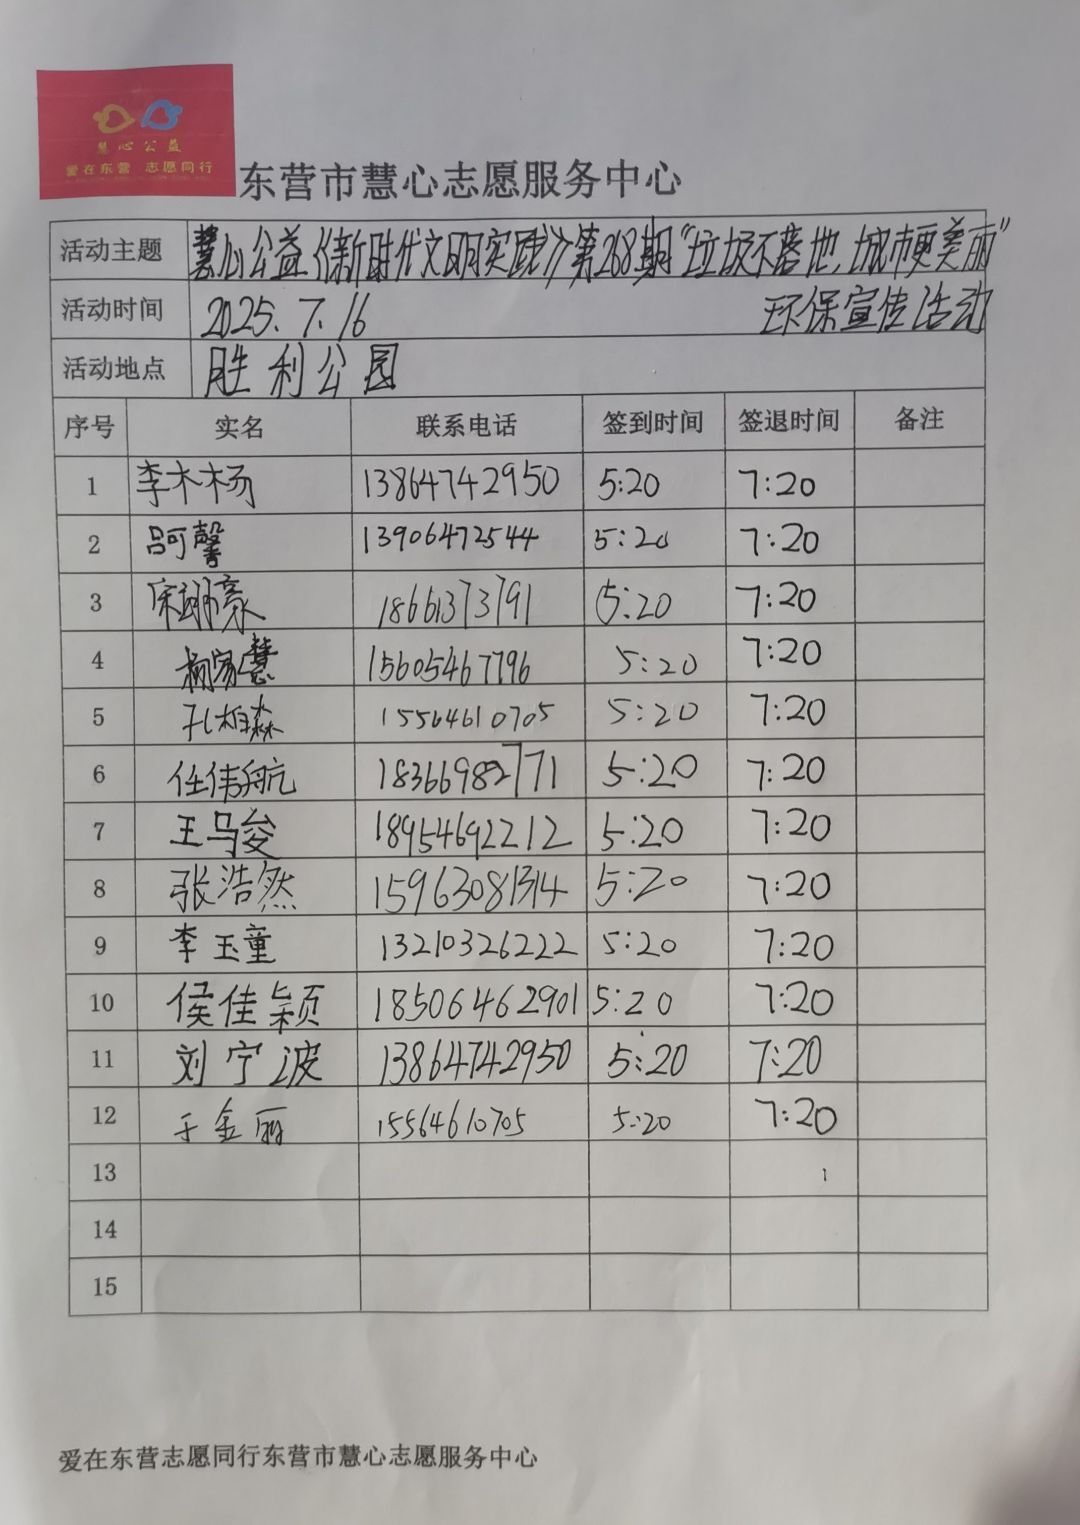 慧心公益
爱在东营 志愿同行
东营市慧心志愿服务中心
活动主题 慧心公益《新时代文明实践》第268期"垃圾不落地,城市更美丽"
环保宣传活动
活动时间 2025.7.16
活动地点 胜利公园
序号 实名 联系电话 签到时间 签退时间 备注
1 李木杨 13864742950 5:20 7:20
2 吕可馨 13906472544 5:20 7:20
3 宋翊豪 18661373791 5:20 7:20
4 杨家慧 15605467796 5:20 7:20
5 孔相森 15564610705 5:20 7:20
6 任伟航 18366982771 5:20 7:20
7 王马俊 18954692212 5:20 7:20
8 张浩然 15963081314 5:20 7:20
9 李玉童 13210326222 5:20 7:20
10 侯佳颖 18506462901 5:20 7:20
11 刘宁波 13864742950 5:20 7:20
12 于金丽 15564610705 5:20 7:20
13
14
15
爱在东营志愿同行东营市慧心志愿服务中心